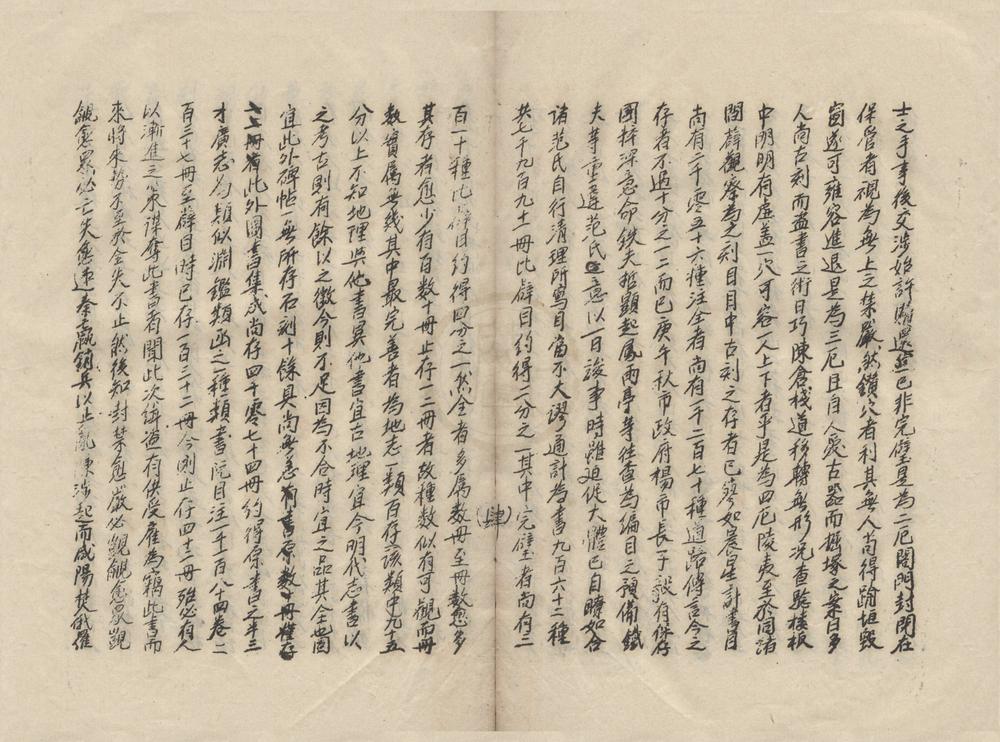 士之手事後交涉始許贖還並已非完璧是為二厄閣門封閉在
保管者視為無上之禁嚴然鑽穴者利其無人尚得踰垣毀
窗遂可雍容進退是為三厄且自人愛古器而掘塚之案日多
人尚古刻而盜書之術日巧陳倉棧道移轉無形況查點樓板
中明明有虛蓋一穴可容一人上下者乎是為四厄陵夷至於同諸
閣薛觀察為之刻目目中古刻之存者已寥如晨星計書目
尚有二千零五十六種注全者尚有一千二百七十種道路傳言今之
存者不過十分之一二而已庚午秋市政府楊市長子毅有保存
國粹深意命鐵夫挺顯起屬雨亭等往查為編目之預備鐵
夫等重違范氏意以一日竣事時雖迫促大體已自瞭如合
諸范氏自行清理所寫目當不大謬通計為書九百六十二種
共七千九百九十一冊比薛目約得二分之一其中完璧者尚有三
(肆)
百一十種比薛目約得四分之一然全者多屬數冊至冊數愈多
其存者愈少有百數十冊止存一二冊者故種數似有可觀而冊
數實屬無幾其中最完善者為地志一類百存該類中九十五
分以上不知地理與他書異他書宜古地理宜今明代志書以
之考古則有餘以之徵今則不足因為不合時宜之品其全也固
宜此外碑帖一無所存石刻十餘具尚無恙
此外圖書集成尚存四千零七十四冊約得原書之半三
才廣志為類似淵鑑類函之一種類書阮目注一千一百八十四卷二
百三十七冊至薛目時已存一百三十二冊今則止存四十二冊殆必有人
以漸進之策謀奪此書者聞此次緝盜有供受雇為竊此書而
來將來勢不至於全失不止然後知封禁愈嚴必覬覦愈眾覬
覦愈眾必亡失愈速秦羸銷兵以止亂陳涉起而咸陽焚祇羅